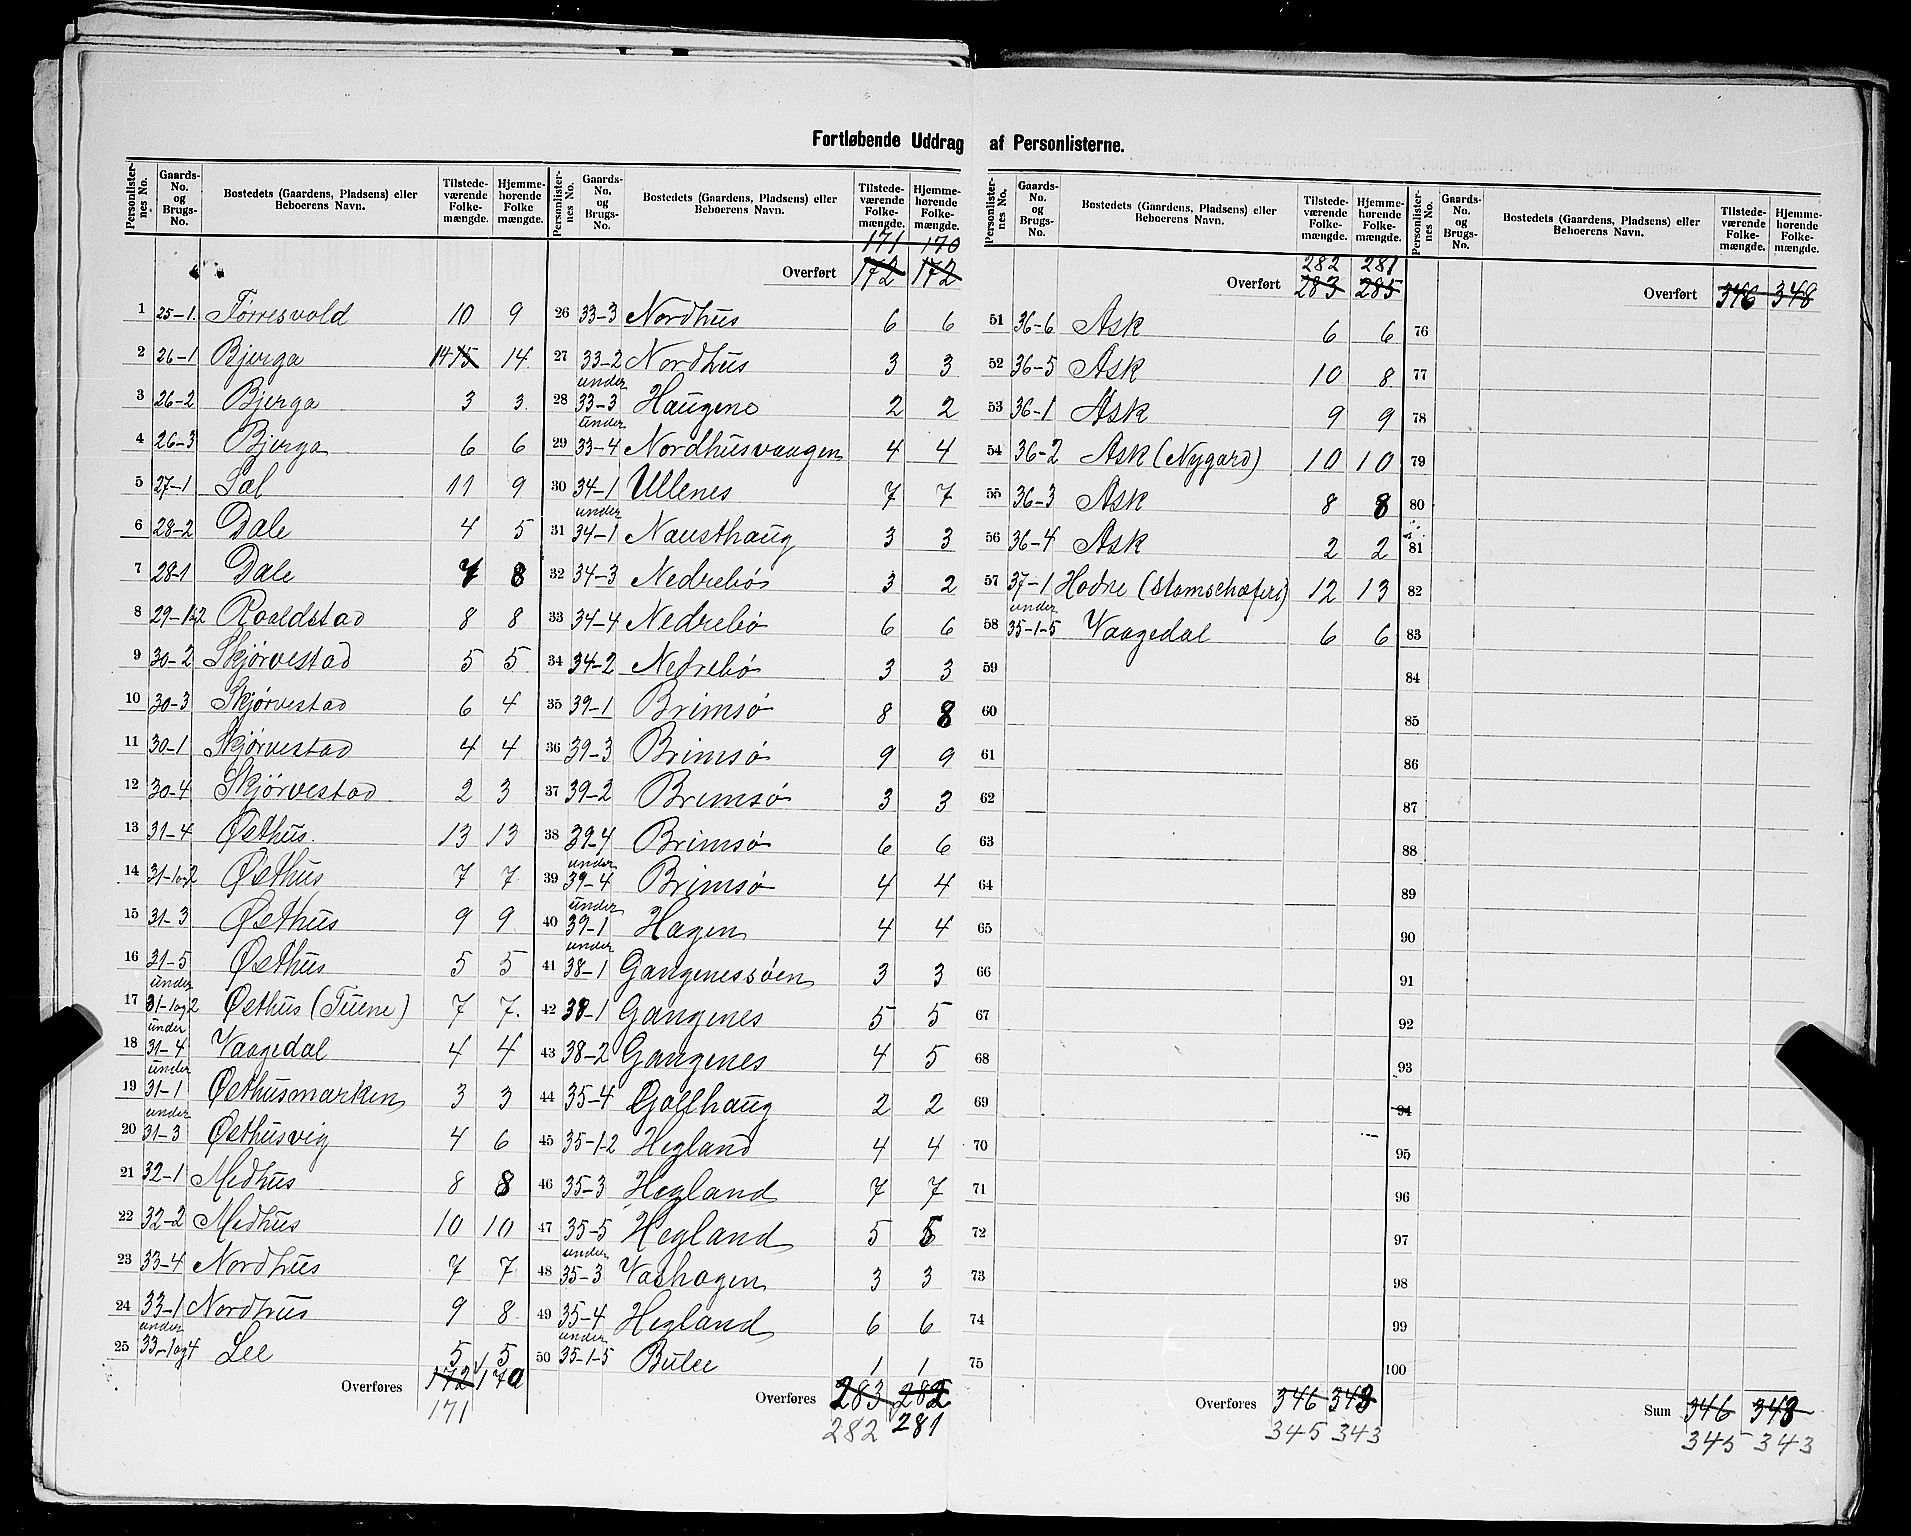 Fortløbende Uddrag af Personlisterne.
Personlister-nes No. | Gaards-No. og Brugs-No. | Bostedets (Gaardens, Pladsens) eller Beboerens Navn. | Tilstede-værende Folke-mængde. | Hjemme-hørende Folke mængde.
1 25-1. Førresvold 10 9
2 26-1 Bjerga 14 15 14
3 26-2 Bjerga 3 3
4 26-3 Bjerga 6 6
5 27-1 Sal 11 9
6 28-2 Dale 4 5
7 28-1 Dale 7 8
8 29-1&2 Roaldstad 8 8
9 30-2 Skjørvestad 5 5
10 30-3 Skjørvestad 6 4
11 30-1 Skjørvestad 4 4
12 30-4 Skjørvestad 2 3
13 31-4 Østhus 13 13
14 31-1og2 Østhus 7 7
15 31-3 Østhus 9 9
16 31-5 Østhus 5 5
17 under 31-1og2 Østhus (Tuene) 7 7.
18 under 31-4 Vaagedal 4 4
19 under 31-1 Østhusmarken 3 3
20 under 31-3 Østhusvig 4 6
21 32-1 Medhus 8 8
22 32-2 Medhus 10 10
23 33-4 Nordhus 7 7
24 33-1 Nordhus 9 8
25 under 33-1og4 Lee 5 5
Overføres 172 170
171
Personlister-nes No. | Gaards-No. og Brugs-No. | Bostedets (Gaardens, Pladsens) eller Beboerens Navn. | Tilstede-værende Folke-mængde. | Hjemme-hørende Folke-mængde.
171 170
Overført 172 172
26 33-3 Nordhus 6 6
27 33-2 Nordhus 3 3
28 under 33-3 Haugene 2 2
29 under 33-4 Nordhusvaagen 4 4
30 34-1 Ullenes 7 7
31 under 34-1 Nausthaug 3 3
32 34-3 Nedrebø 3 2
33 34-4 Nedrebø 6 6
34 34-2 Nedrebø 3 3
35 39-1 Brimsø 8 8
36 39-3 Brimsø 9 9
37 39-2 Brimsø 3 3
38 39-4 Brimsø 6 6
39 under 39-4 Brimsø 4 4
40 under 39-1 Hagen 4 4
41 under 38-1 Gangenessøen 3 3
42 38-1 Gangenes 5 5
43 38-2 Gangenes 4 5
44 35-4 Gollhaug 2 2
45 35-1-2 Hegland 4 4
46 35-3 Hegland 7 7
47 35-5 Hegland 5 5
48 under 35-3 Vashagen 3 3
49 35-4 Hegland 6 6
50 under 35-1-5 Bulee 1 1
Overføres 283 282
282 281
Personlister-nes No. | Gaards-No. og Brugs-No. | Bostedets (Gaardens, Pladsens) eller Beboerens Navn. | Tilstede-værende Folke-mængde. | Hjemme-hørende Folke-mængde.
282 281
Overført 283 285
51 36-6 Ask 6 6
52 36-5 Ask 10 8
53 36-1 Ask 9 9
54 36-2 Ask (Nygard) 10 10
55 36-3 Ask 8 8
56 36-4 Ask 2 2
57 37-1 Hodne (Stamschæferi) 12 13
58 under 35-1-5 Vaagedal 6 6
59
60
61
62
63
64
65
66
67
68
69
70
71
72
73
74
75
Overføres 346 348
345 343
Personlister-nes No. | Gaards-No. og Brugs-No. | Bostedets (Gaardens, Pladsens) eller Beboerens Navn. | Tilstede-værende Folke-mængde. | Hjemme-hørende Folke-mængde.
Overført 346 348
76
77
78
79
80
81
82
83
84
85
86
87
88
89
90
91
92
93
94
95
96
97
98
99
100
Sum 346 348
345 343